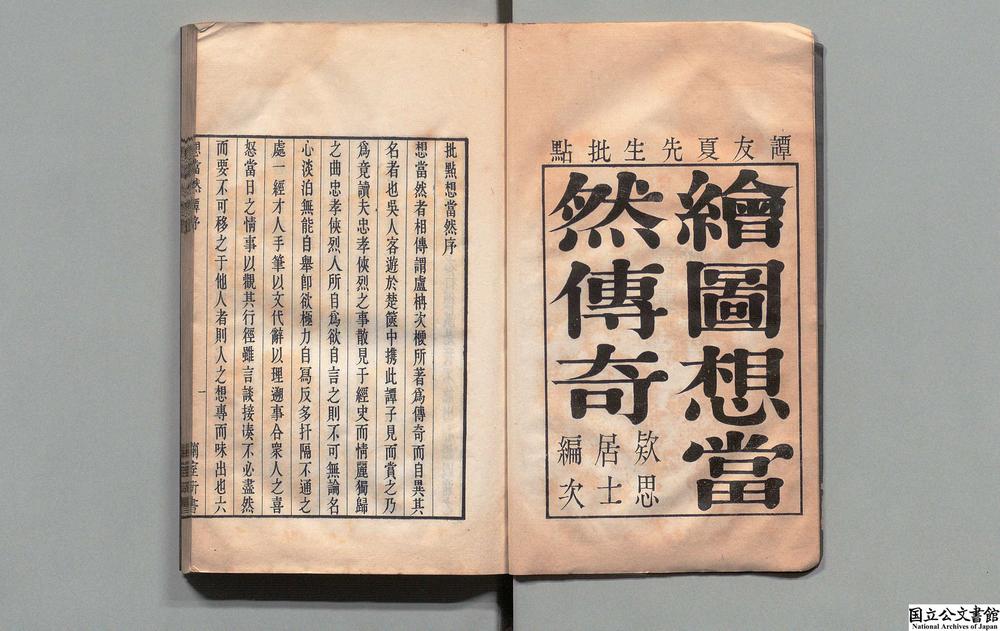 譚友夏先生批點
繪圖想當
然傳奇
欵思
居士
編次
批點想當然序
想當然者相傳謂盧柟次楩所著爲傳奇而自異其
名者也吳人客遊於楚篋中携此譚子見而賞之乃
爲竟讀夫忠孝俠烈之事散見于經史而情麗獨歸
之曲忠孝俠烈人所自爲欲自言之則不可無論名
心淡泊無能自舉卽欲極力自寫反多扞隔不通之
處一經才人手筆以文代辭以理遡事合衆人之喜
怒當日之情事以觀其行徑雖言談接湊不必盡然
而要不可移之于他人者則人之想專而味出也六
想當然譚序
一
国立公文書館
National Archives of Japan